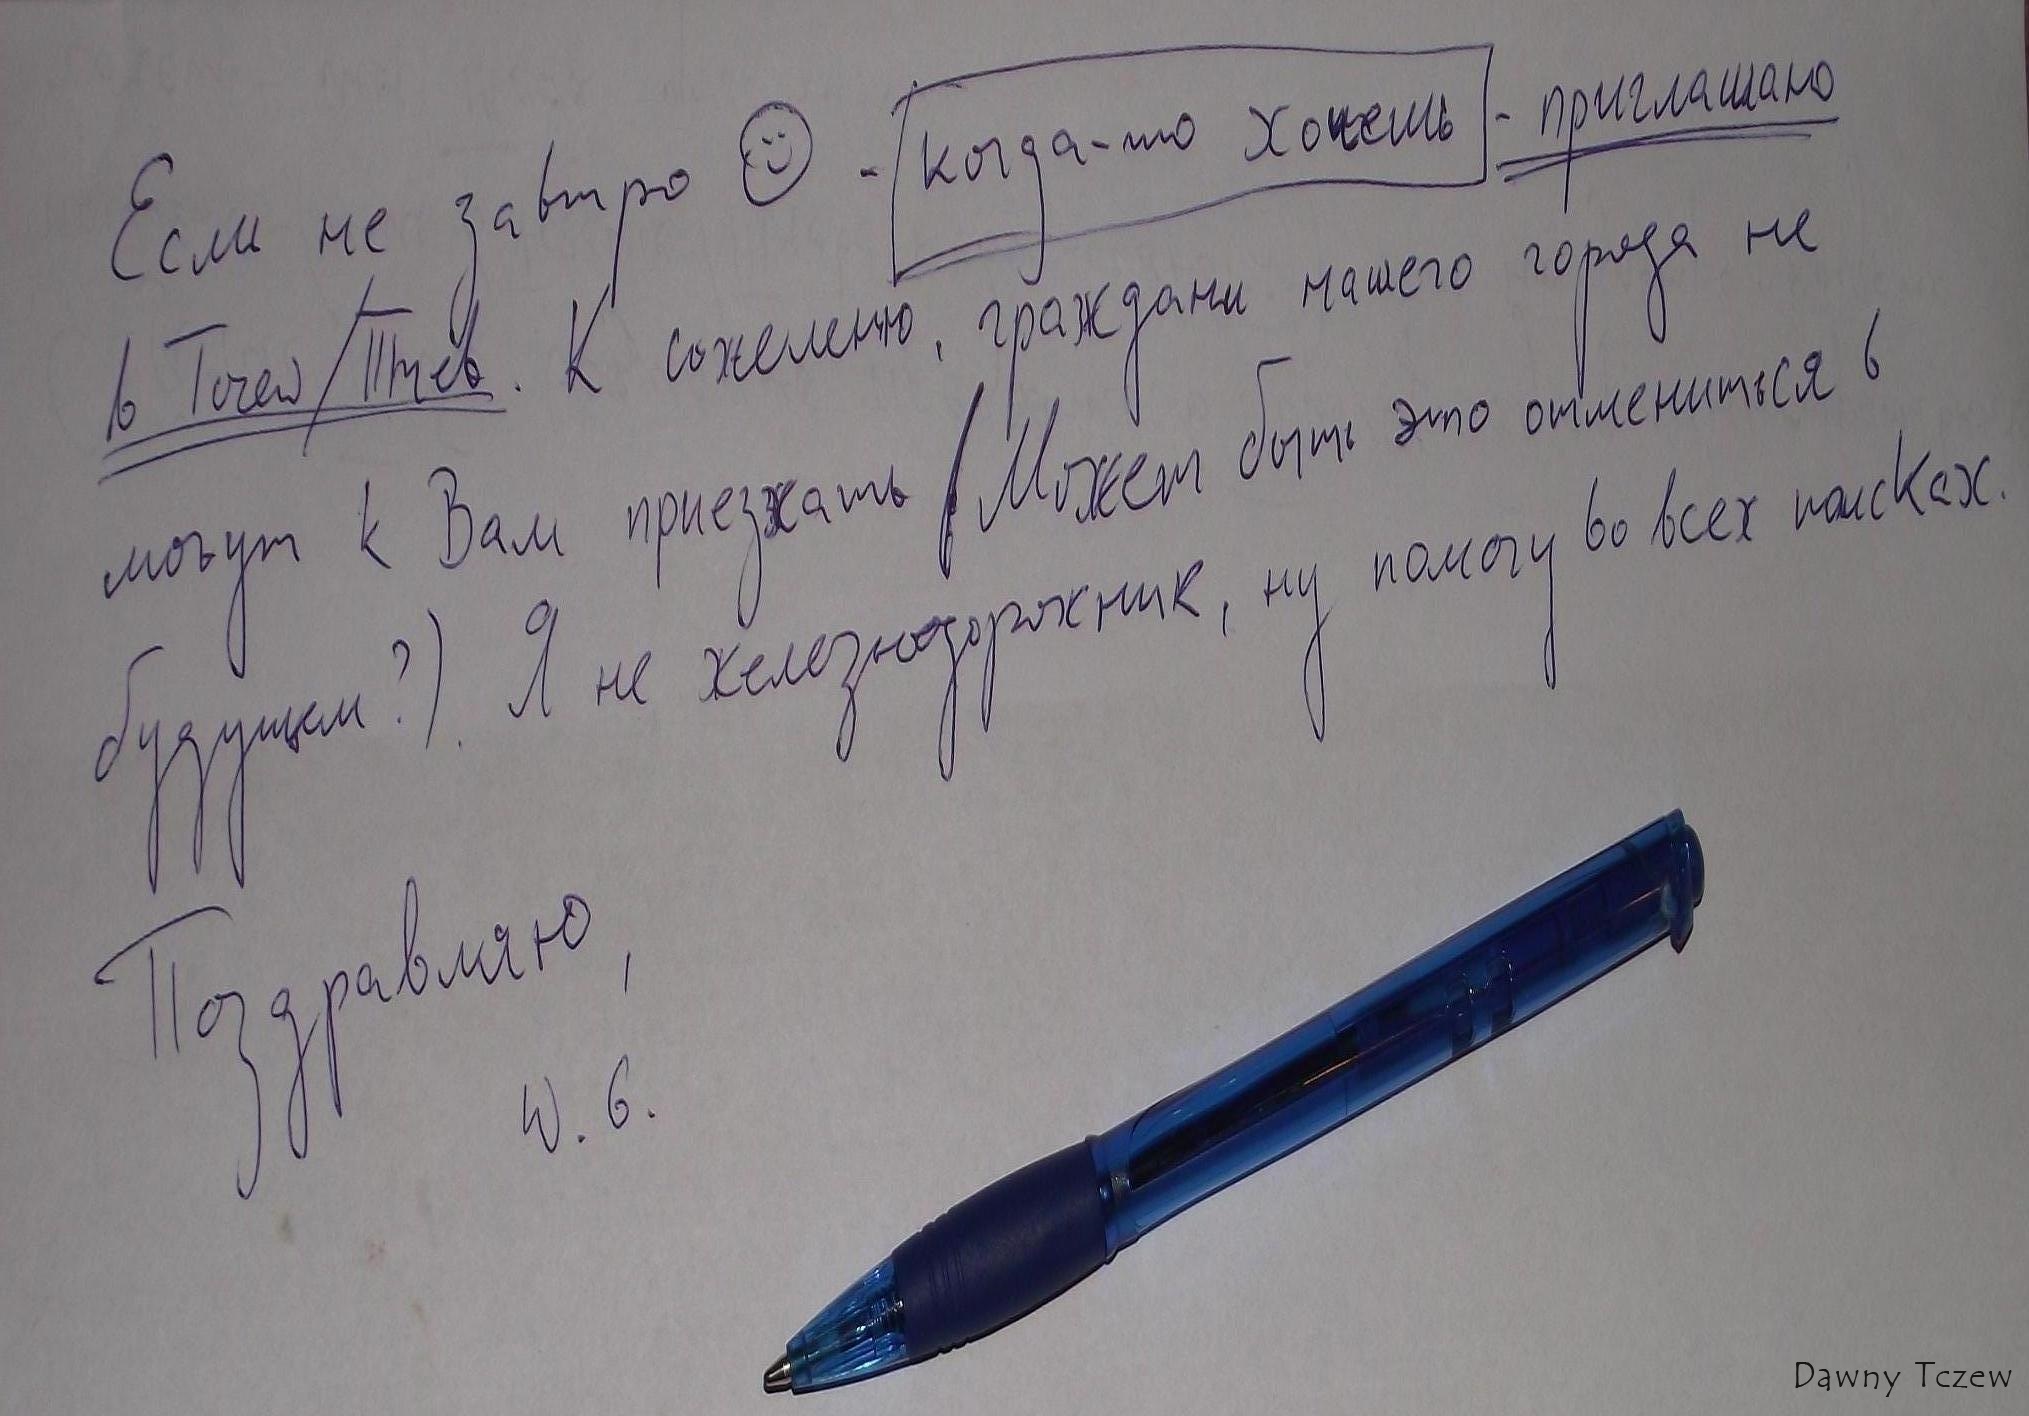 Если не завтро - когда-то хочешь - приглашаю
в Точев/Тчев. К сожеленю, граждани нашего города не
могут к Вам приезжать (Может быть это отмениться в
будущем?). Я не железнодорожник, ну помогу во всех поисках.
Поздравляю,
W. G.
Dawny Tczew